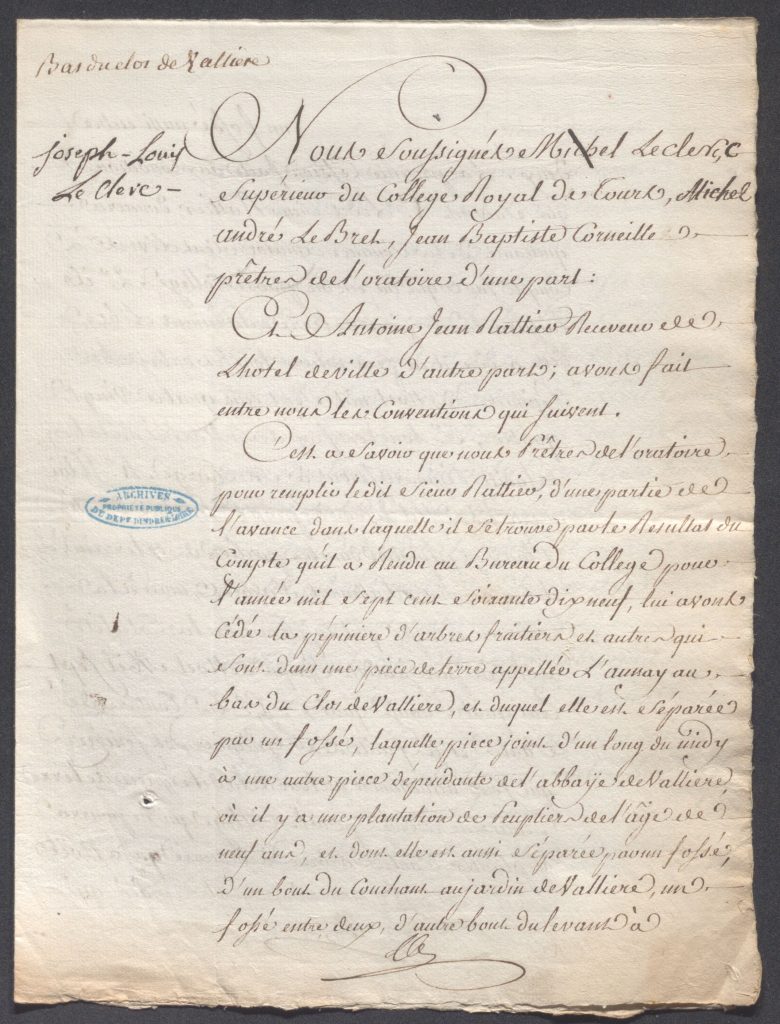 Bas du clos de Valliere
joseph-Louis
Le Clerc-
Nous soussignés Michel Leclerc,
Supérieur du College Royal de Tours, Michel
andré Le Bret, Jean Baptiste Corneille
prêtres de l'oratoire d'une part :
Et Antoine Jean Rattier Receveur de
Lhotel de ville d'autre part ; avons fait
entre nous les Conventions qui suivent.
C'est a Savoir que nous Prêtres de l'oratoire
pour remplir ledit sieur Rattier, d'une partie de
l'avance dans laquelle il se trouve par le Resultat du
Compte qu'il a Rendu au Bureau du College pour
l'année mil sept cent soixante dix neuf, lui avons
Cédé la pépiniere d'arbres fruitiers et autres qui
sont dans une piece de terre appellée L'aunay au
bas du Clos de Valliere, et duquel elle est séparée
par un fossé, laquelle piece joint d'un long du midy
à une autre piece dépendante de l'abbaÿe de Valliere,
où il y a une plantation de Peupliers de l'âge de
neuf ans, et dont elle est aussi séparée par un fossé,
d'un bout du Couchant au jardin de Valliere, un
fossé entre deux, d'autre bout du levant à
ARCHIVES
PROPRIÉTÉ PUBLIQUE
DU DEPT D'INDRE & LOIRE